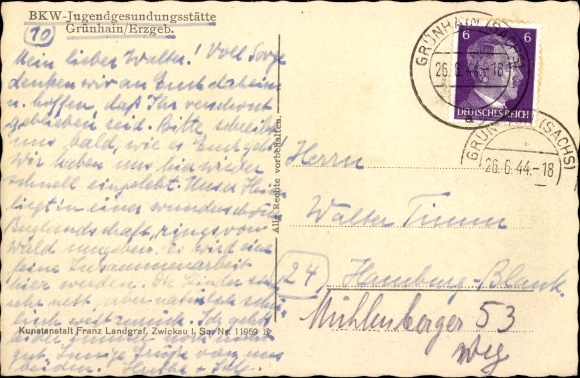 BKW-Jugendgesundungsstätte
Grünhain/Erzgeb.
10
Mein lieber Walter! Voll Sorge
denken wir an Euch daheim
u. hoffen, daß Ihr verschont
geblieben seid. Bitte, schreibt
uns bald, wie es Euch geht.
Wir haben uns hier wieder
schnell eingelebt. Unser Heim
liegt in einer wunderschönen
Berglandschaft, rings von
Wald umgeben. Es wird eine
feine Zusammenarbeit
hier werden. Die Kinder sind
sehr nett, aber natürlich
nicht
gut. Innige Grüße von uns
beiden!
Kunstanstalt Franz Landgraf, Zwickau i. Sa. Nr. 11969
Alle Rechte vorbehalten.
GRÜNHAIN (SACHS)
26.6.44.-18
a
6 6
DEUTSCHES REICH
GRÜNHAIN (SACHS)
26.6.44.-18
Herrn
Walter Timm
24 Hamburg-Blank.
Mühlenberger 53
Weg